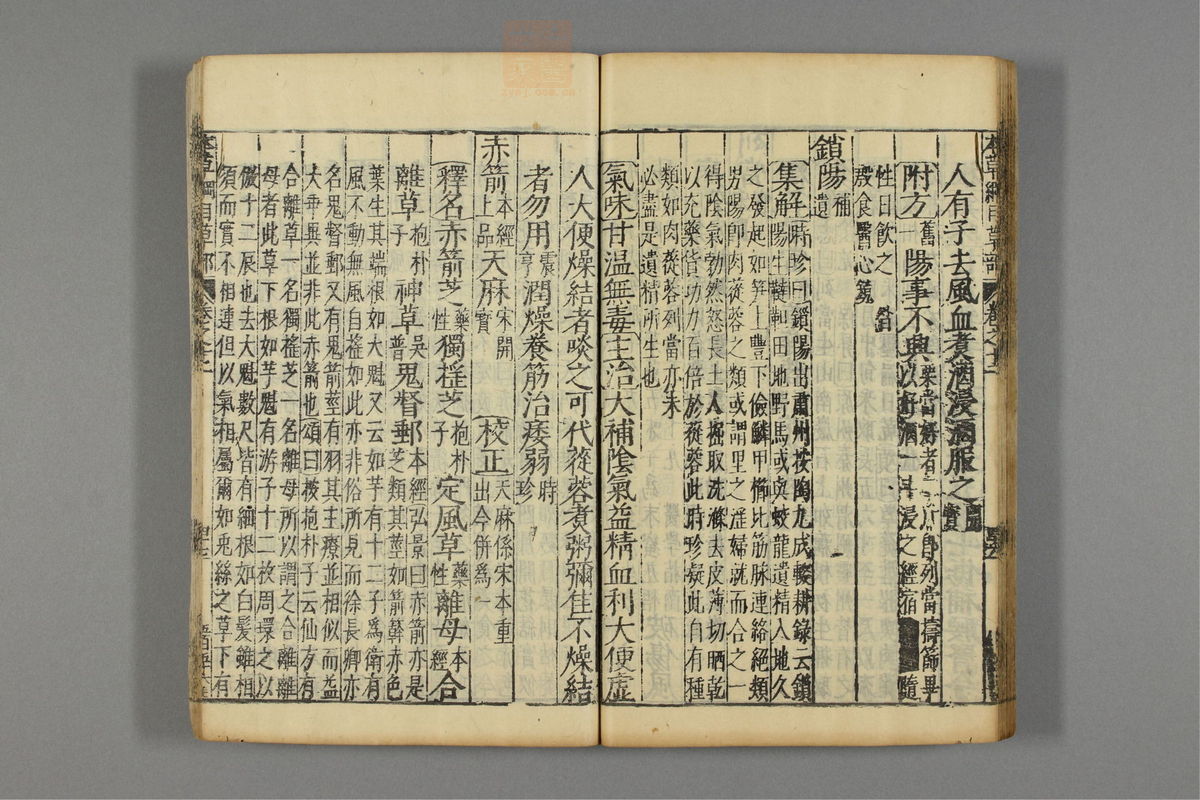 本草綱目草部
人有子去風血煑酒浸酒服之
附方舊一陽事不興以好酒一斗浸之經宿隨
性日飲之
殷食醫心鏡
鎖陽補遺
集解時珍曰鎖陽出肅州按陶九成輟耕錄云鎖
陽生韃靼田地野馬或與蛟龍遺精入地久
之發起如笋上豐下儉鱗甲櫛比筋脉連絡絕類
男陽卽肉蓯蓉之類或謂里之淫婦就而合之一
得陰氣勃然怒長土人掘取洗滌去皮薄切晒乾
以充藥貨功力百倍於蓯蓉也時珍疑此自有種
類如肉蓯蓉列當亦未
必盡是遺精所生也
氣味甘溫無毒主治大補陰氣益精血利大便虛
人大便燥結者啖之可代蓯蓉煑粥彌佳不燥結
者勿用震亨潤燥養筋治痿弱時珍
赤箭本經上品天麻宋開寶校正天麻係宋本重出今併爲一
釋名赤箭芝藥性獨搖芝抱朴子定風草藥性離母本經合
離草抱朴子神草吳普鬼督郵本經弘景曰赤箭亦是
芝類其莖如箭簳赤色
葉生其端根如人魁又云如芋有十二子爲衛有
風不動無風自搖如此亦非俗所見而徐長卿亦
名鬼督郵又有鬼箭莖有羽其主療並相似而益
大乖異並非此赤箭也頌曰按抱朴子云仙方有
合離草一名獨搖芝一名離母所以謂之合離離
母者此草下根如芋魁有游子十二枚周環之以
儗十二辰也去大魁數尺皆有細根如白髮雖相
須而實不相連但以氣相屬爾如兎絲之草下有
本草綱目草部